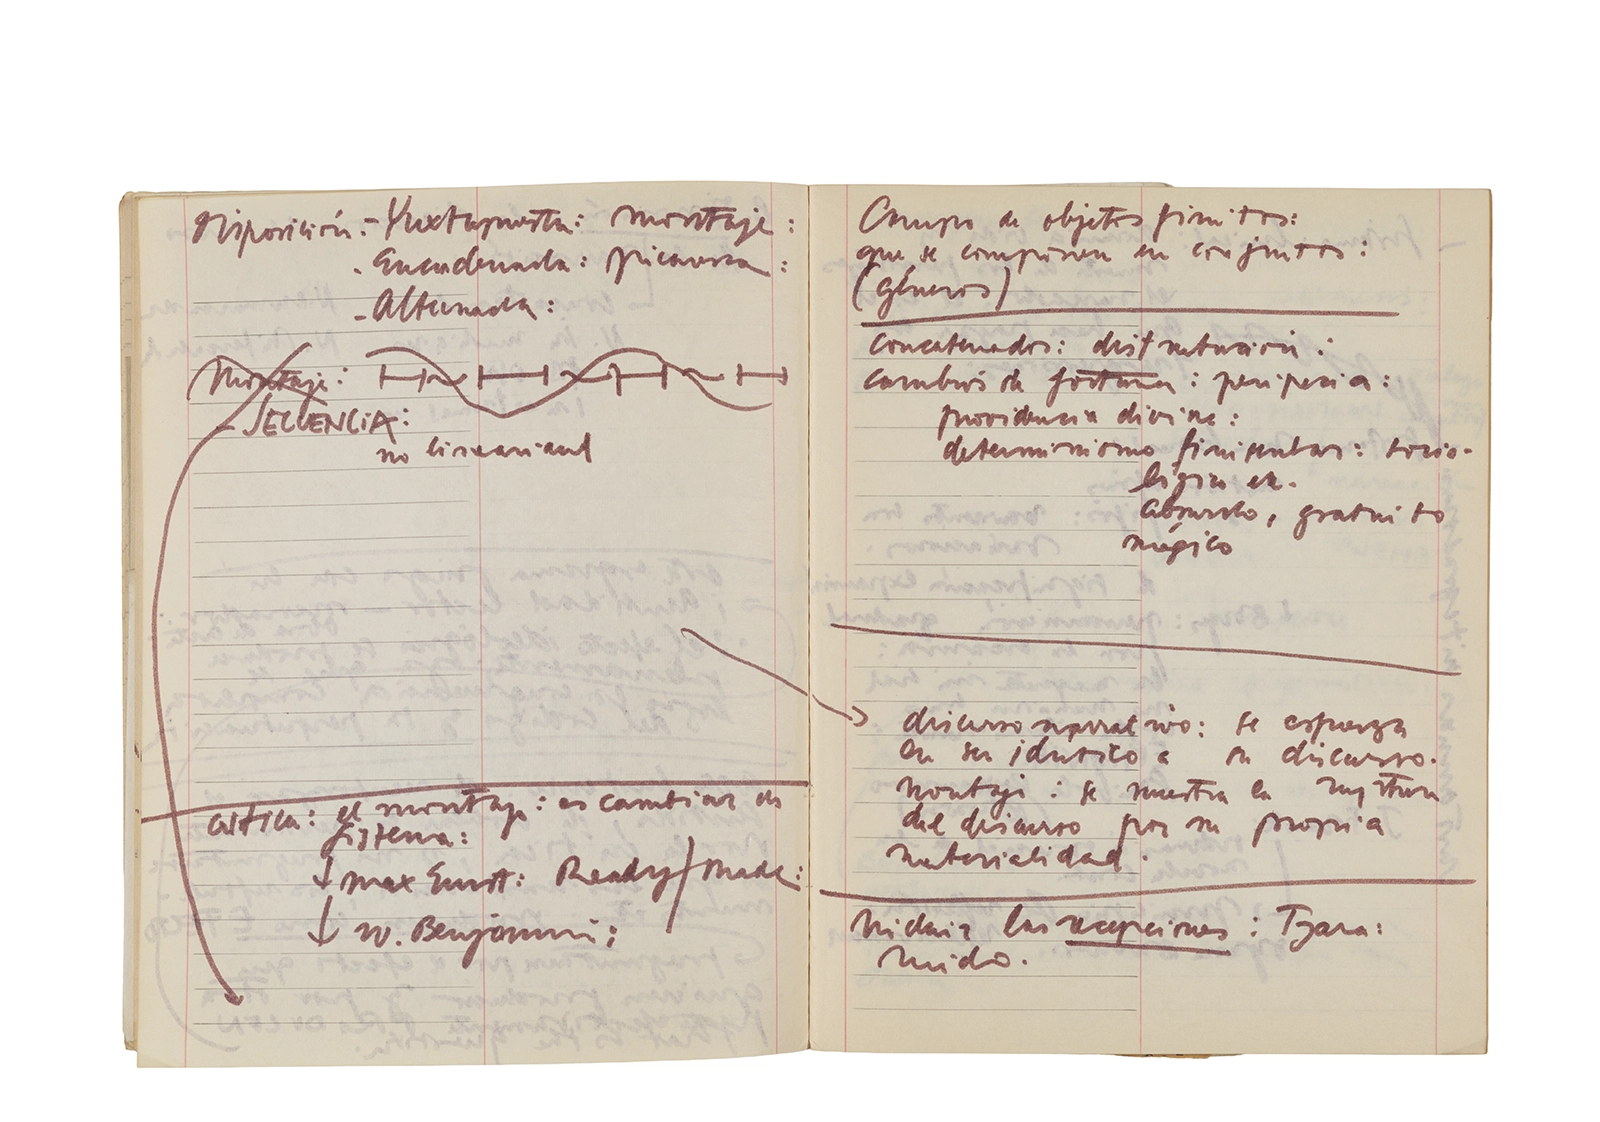 Disposición: - Yuxtapuesta: montaje:
- Encadenada: picaresca:
- Alternada:
Montaje:
- SECUENCIA:
no linearidad
crítica: el montaje: es cambiar de
sistema:
↓ max Ernst: Ready/made:
↓ w. Benjamin:
Campo de objetos finitos:
que se componen en conjuntos:
(géneros)
concatenados: destrucción:
cambios de fortuna: peripecia:
providencia divina:
determinismo socio-
lógico etc.
absurdo, gratuito
mágico
discurso narrativo: se esfuerza
en ser idéntico a su discurso.
montaje: se muestra la
del discurso por su propia
materialidad.
las recepciones: Tzara:
ruido.